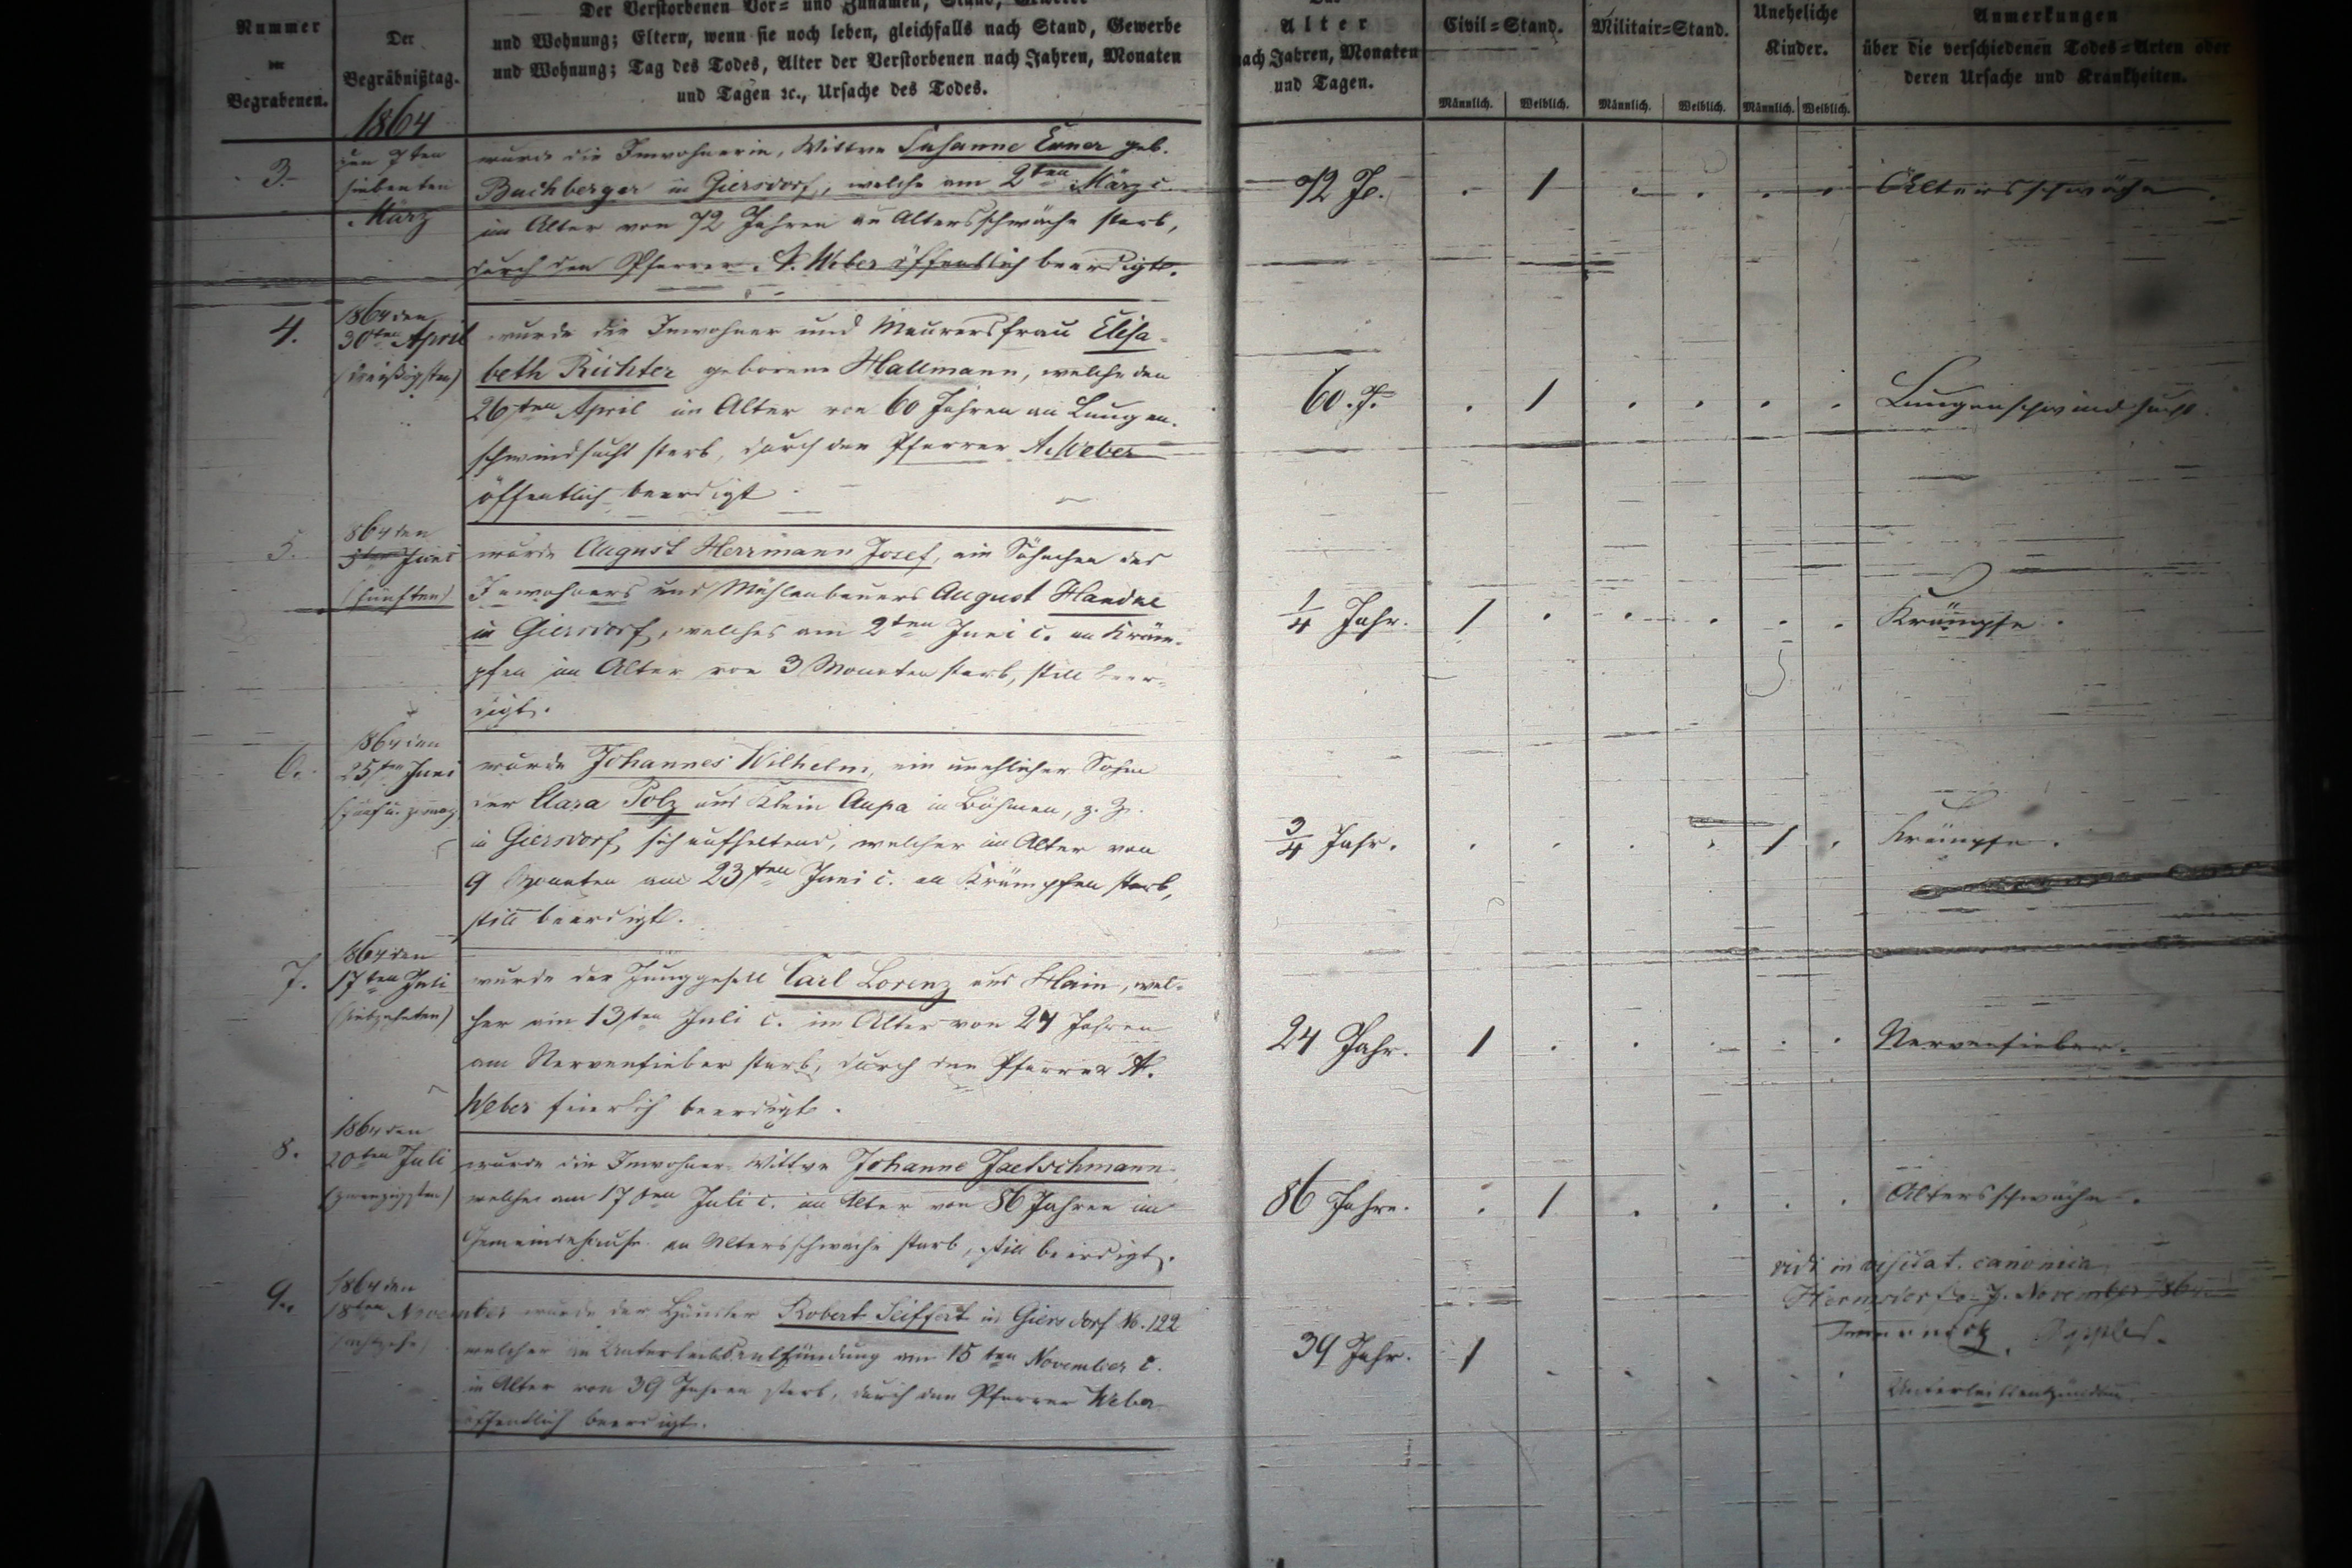 Nummer
der
Begrabenen.
Der
Begräbnißtag.
1864
Der Verstorbenen Vor= und Zunamen, Stand, Gewerbe
und Wohnung; Eltern, wenn sie noch leben, gleichfalls nach Stand, Gewerbe
und Wohnung; Tag des Todes, Alter der Verstorbenen nach Jahren, Monaten
und Tagen ꝛc., Ursache des Todes.
Alter
nach Jahren, Monaten
und Tagen.
Civil=Stand.
Männlich. Weiblich.
Militair=Stand.
Männlich. Weiblich.
Uneheliche
Kinder.
Männlich. Weiblich.
Anmerkungen
über die verschiedenen Todes=Arten oder
deren Ursache und Krankheiten.
3.
den 7ten
siebenten
März
wurde die Inwohnerin, Wittwe Susanne Exner geb.
Buchberger in Giersdorf, welche am 2ten März c.
im Alter von 72 Jahren an Altersschwäche starb,
durch den Pfarrer A. Weber öffentlich beerdigt.
72 J. . 1 . . . . Altersschwäche.
4.
1864 den
30ten April
(dreißigsten)
wurde die Inwohner und Maurersfrau Elisa-
beth Richter geborene Hallmann, welche den
26ten April im Alter von 60 Jahren an Lungen-
schwindsucht starb, durch den Pfarrer A. Weber
öffentlich beerdigt.
60. J. . 1 . . . . Lungenschwindsucht.
5.
1864 den
5ten Juni
(fünften)
wurde August Herrmann Josef, ein Söhnchen des
Inwohners und Mühlenbauers August Handke
in Giersdorf, welches am 2ten Juni c. an Kräm-
pfen im Alter von 3 Monaten starb, still beer-
digt.
1/4 Jahr. 1 . . . . . Krämpfe.
6.
1864 den
25ten Juni
(fünf u. zwanz
wurde Johannes Wilhelm, ein unehlicher Sohn
der Clara Polz aus Klein Aupa in Böhmen, z. Z.
in Giersdorf sich aufhaltend, welcher im Alter von
9 Monaten am 23ten Juni c. an Krämpfen starb,
still beerdigt.
3/4 Jahr. . . . . 1 . Krämpfe.
7.
1864 den
17ten Juli
(siebzehnten)
wurde der Junggesell Carl Lorenz aus Hain, wel-
cher am 13ten Juli c. im Alter von 24 Jahren
am Nervenfieber starb, durch den Pfarrer A.
Weber feierlich beerdigt.
24 Jahr. 1 . . . . . Nervenfieber.
8.
1864 den
20ten Juli
(zwanzigsten)
wurde die Inwohner-Wittwe Johanne Jaetschmann,
welche am 17ten Juli c. im Alter von 86 Jahren im
Gemeindehause an Altersschwäche starb, still beerdigt.
86 Jahre. . 1 . . . . Altersschwäche.
vidi in visitat. canonica
Hermsdorf d. 7. November 1864
9.
1864 den
18ten November wurde der Häusler Robert Seiffert in Giersdorf No. 122
welcher an Unterleibsentzündung am 15ten November c.
im Alter von 39 Jahren starb, durch den Pfarrer Weber
öffentlich beerdigt.
39 Jahr. 1 . . . . . Unterleibsentzündung.